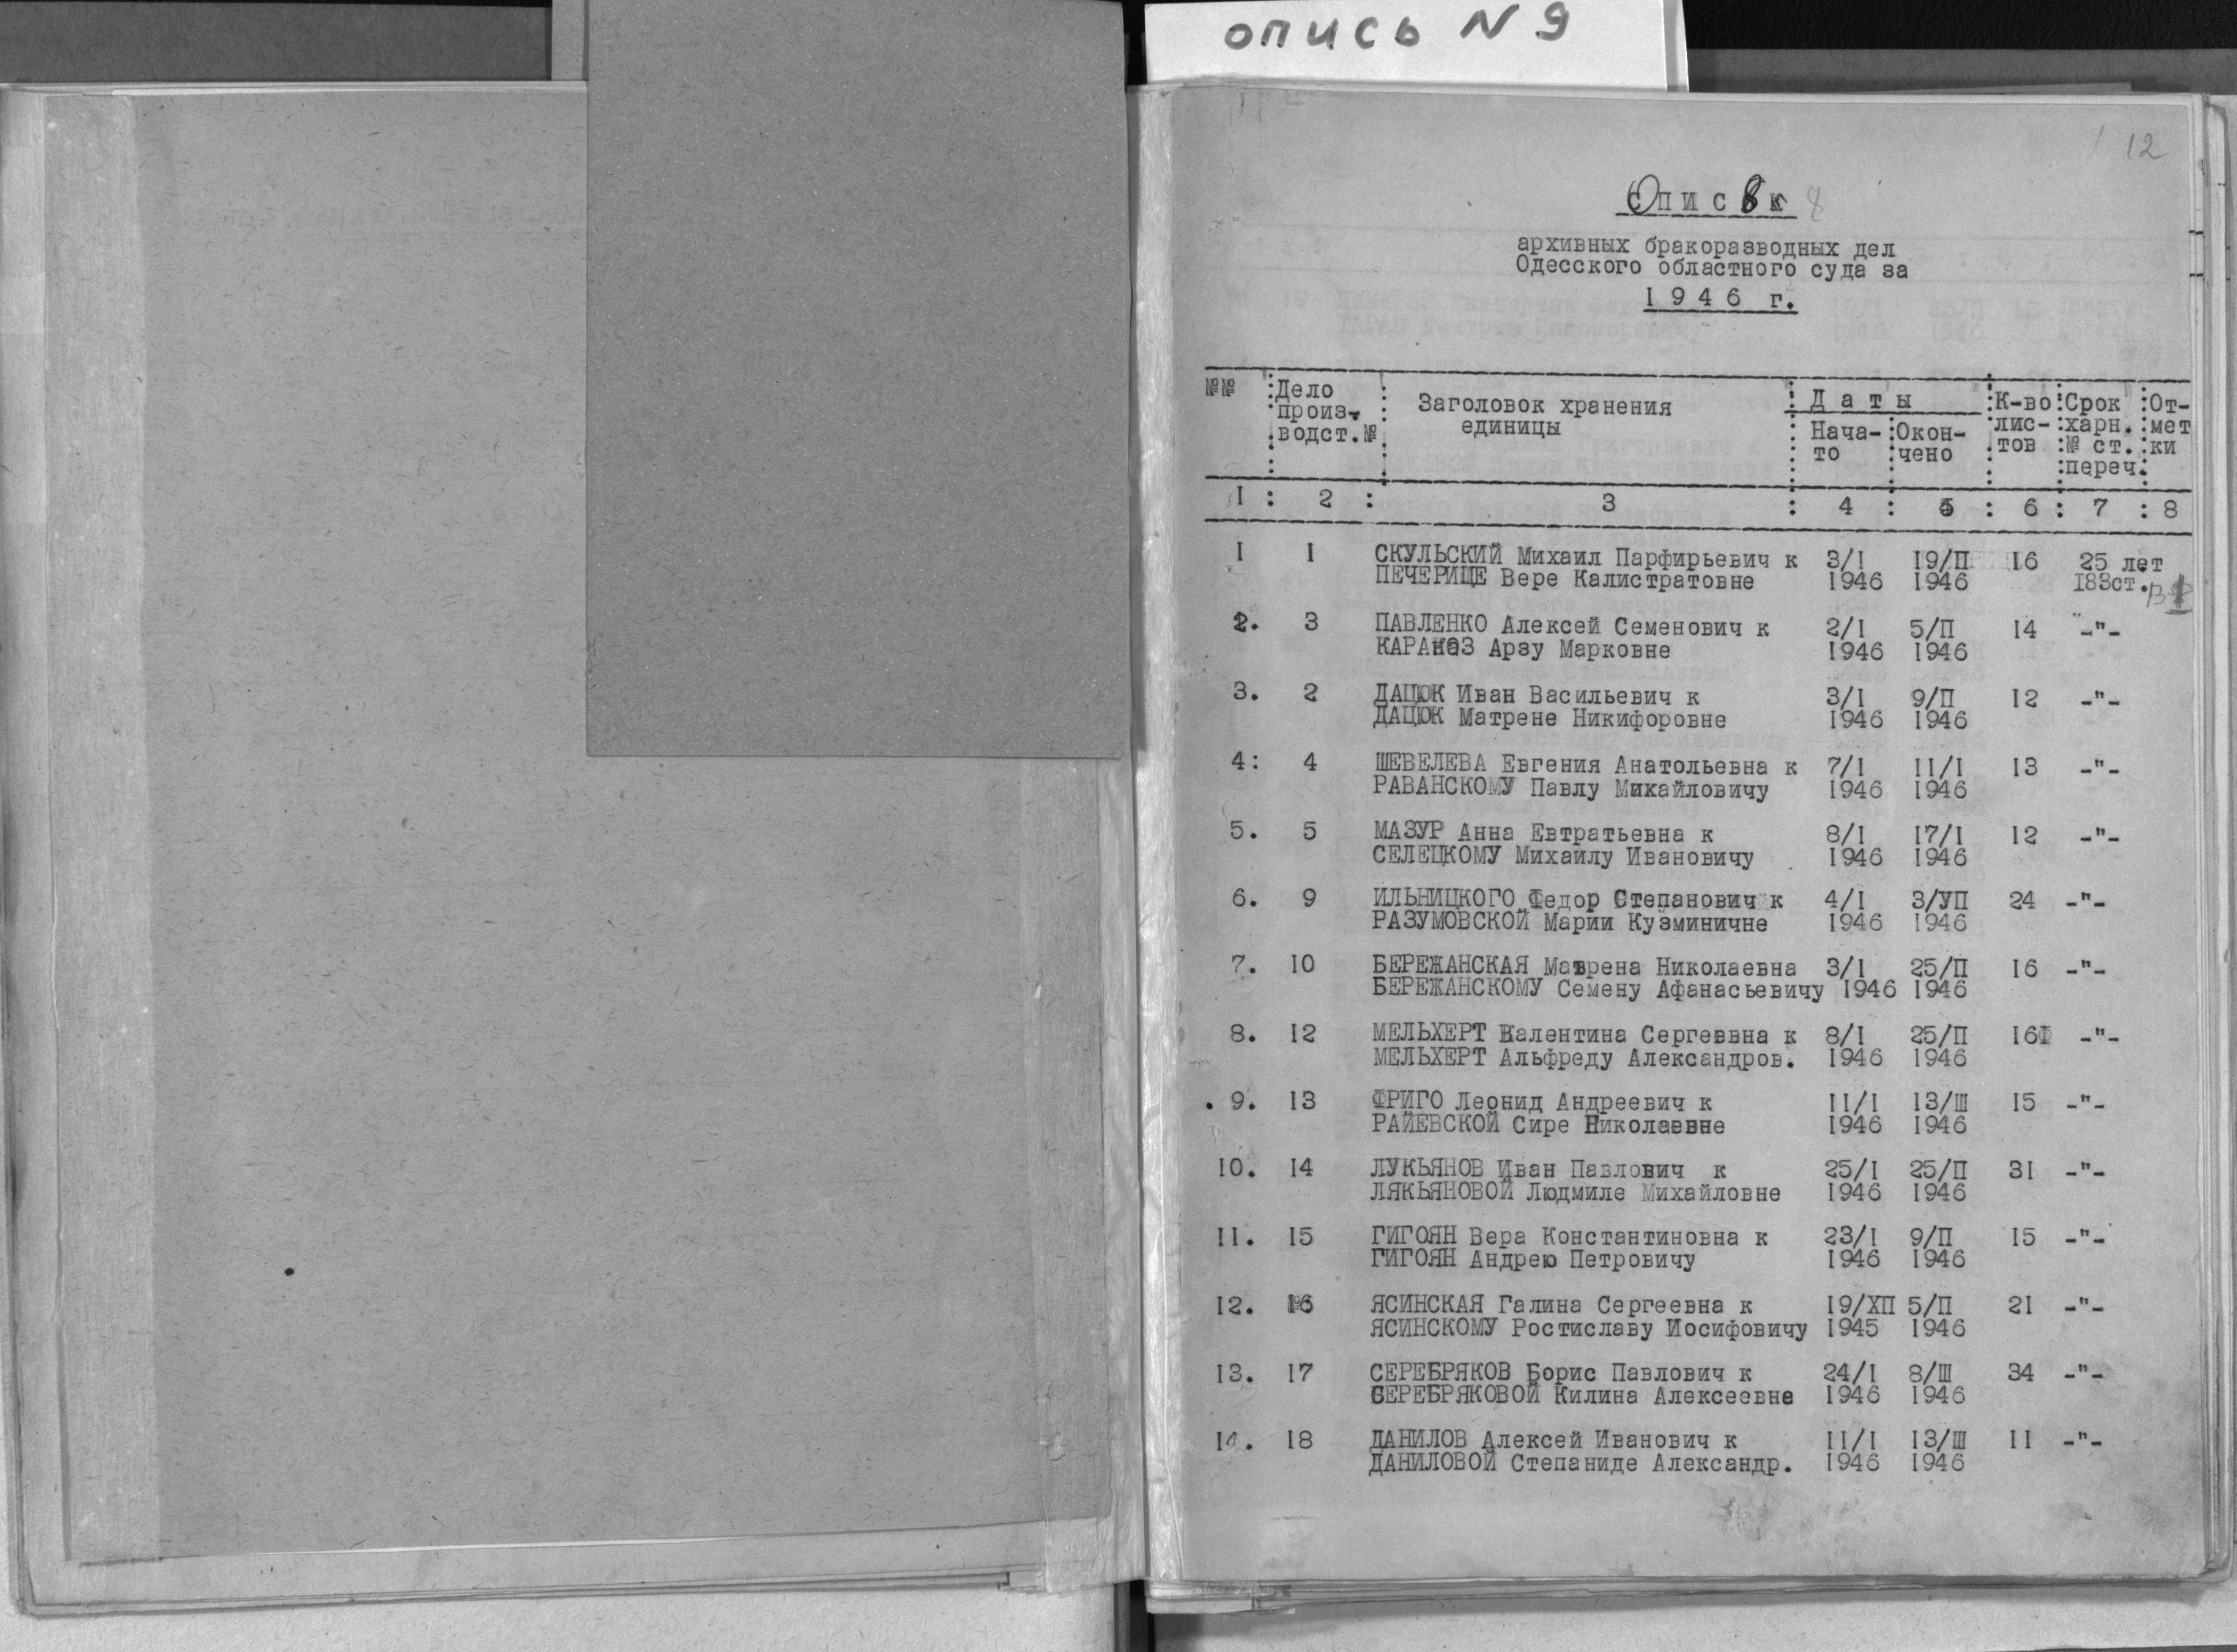 опись N 9
12
Опись 8
архивных бракоразводных дел
Одесского областного суда за
1946 г.
№№ Дело произ-водст.№ Заголовок хранения единицы Даты К-во лис-тов Срок харн. № ст. переч. От-мет ки
Нача-то Окон-чено
1 : 2 : 3 : 4 : 5 : 6 : 7 : 8
I I СКУЛЬСКИЙ Михаил Парфирьевич к 3/I 19/П 16 25 лет
ПЕЧЕРИЦЕ Вере Калистратовне 1946 1946 183ст.
2. 3 ПАВЛЕНКО Алексей Семенович к 2/I 5/П 14 -"-
КАРАНАЗ Арзу Марковне 1946 1946
3. 2 ДАЦЮК Иван Васильевич к 3/I 9/П 12 -"-
ДАЦЮК Матрене Никифоровне 1946 1946
4: 4 ШЕВЕЛЕВА Евгения Анатольевна к 7/I 11/I 13 -"-
РАВАНСКОМУ Павлу Михайловичу 1946 1946
5. 5 МАЗУР Анна Евтратьевна к 8/I 17/I 12 -"-
СЕЛЕЦКОМУ Михаилу Ивановичу 1946 1946
6. 9 ИЛЬНИЦКОГО Федор Степанович к 4/I 3/УП 24 -"-
РАЗУМОВСКОЙ Марии Кузминичне 1946 1946
7. 10 БЕРЕЖАНСКАЯ Матрена Николаевна 3/I 25/П 16 -"-
БЕРЕЖАНСКОМУ Семену Афанасьевичу 1946 1946
8. 12 МЕЛЬХЕРТ Валентина Сергеевна к 8/I 25/П 16 -"-
МЕЛЬХЕРТ Альфреду Александров. 1946 1946
9. 13 ФРИГО Леонид Андреевич к 11/I 13/Ш 15 -"-
РАЙЕВСКОЙ Сире Николаевне 1946 1946
10. 14 ЛУКЬЯНОВ Иван Павлович к 25/I 25/П 31 -"-
ЛЯКЬЯНОВОЙ Людмиле Михайловне 1946 1946
11. 15 ГИГОЯН Вера Константиновна к 23/I 9/П 15 -"-
ГИГОЯН Андрею Петровичу 1946 1946
12. 16 ЯСИНСКАЯ Галина Сергеевна к 19/ХП 5/П 21 -"-
ЯСИНСКОМУ Ростиславу Иосифовичу 1945 1946
13. 17 СЕРЕБРЯКОВ Борис Павлович к 24/I 8/Ш 34 -"-
СЕРЕБРЯКОВОЙ Килина Алексеевне 1946 1946
14. 18 ДАНИЛОВ Алексей Иванович к 11/I 13/Ш 11 -"-
ДАНИЛОВОЙ Степаниде Александр. 1946 1946